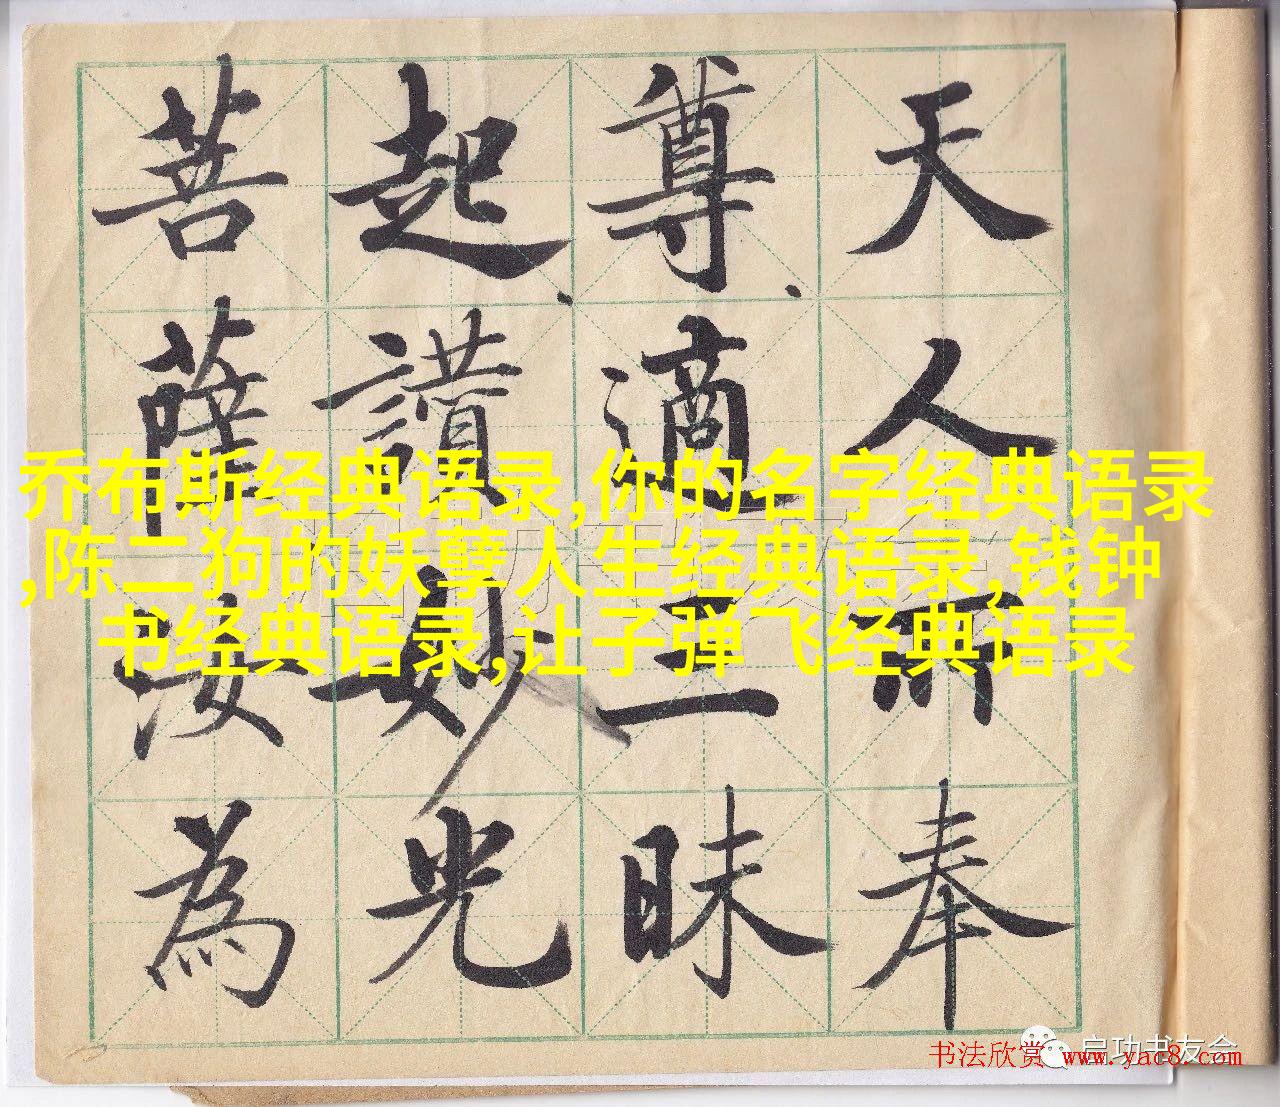 天人而奉
尊適三昧
起讃妙光
菩薩汝為
乔布斯经典语录,你的名字经典语录
,陈二狗的妖孽人生经典语录,钱钟
书经典语录,让子弹飞经典语录
启功书友会
书法欣赏 www.yac8.com